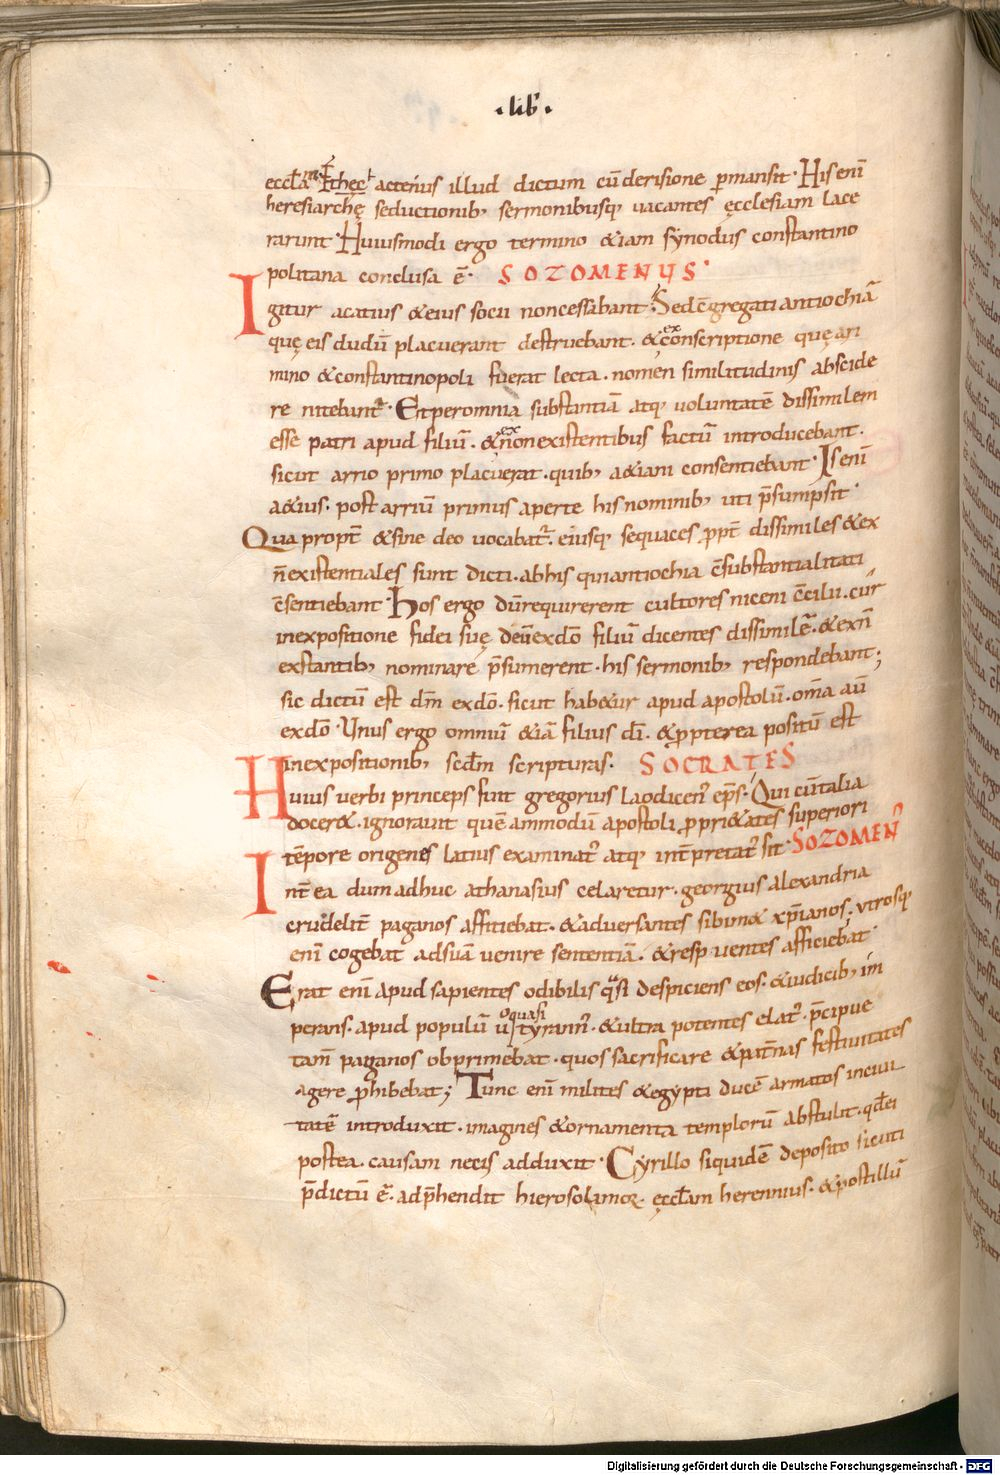 · lib̄ ·
eccl̄am Et hęc acten̄us illud dictum cū derisione p̄mansit · His eni̅
heresiarchę seductionib; sermonibusq; uacantes ęcclesiam lace
rarunt · Huiusmodi ergo termino &iam synodus constantino
politana conclusa ē · SOZOMENUS ·
Igitur acatius & eius socii non cessabant · Sed c̄gregati antiochiā
quę eis dudū placuerant destruebant · & ex conscriptione quę ari
mino & constantinopoli fuerat lecta · nomen similitudinis abscide
re nitebunt̄ · Et per omnia substantiā atq; uoluntatē dissimilem
esse patri apud filiū · & ex non existentibus factū introducebant ·
sicut arrio primo placuerat · quib; a&iani consentiebant · Is eni̅
a&ius · post arriū primus aperte his nominib; uti p̄sumpsit ·
Qua propt̄ & sine deo uocabat̄ · eiusq; sequaces ꝓpt̄ dissimiles & ex
n̄ existentiales sunt dicti · ab his qui antiochia c̄substantialitati
c̄sentiebant · Hos ergo dū requirerent cultores niceni c̄cilii · cur
in expositione fidei suę deū ex dō filiū dicentes dissimilē · & ex n̄
exstantib; nominare p̄sumerent · his sermonib; respondebant ;
sic dictū est dm̄ ex dō · sicut hab&ur apud apostolū · om̄a aū
ex dō · Unus ergo omniū &iā filius dī · & ꝓpterea positū est
in expositionib; scdm̄ scripturas · SOCRATES
Huius uerbi princeps fuit gregorius laodicen̄ ep̄s · Qui cū talia
docer& · ignorauit quē ammodū apostoli ꝓpri&ates superiori
tēpore origenes latius examinat̄ atq; int̄pretat̄ sit · SOZOMEN̄
Int̄ ea dum adhuc athanasius celaretur · georgius alexandria
crudelit̄ paganos affitiebat · & aduersantes sibim& xp̄ianos · utrosq;
eni̅ cogebat ad suā uenire sententiā · & resp uentes afficiebat ·
Erat eni̅ apud sapientes odibilis q̄si despiciens eos · & iudicib; im
perans · apud populū u̅ quasi tyrann̄ · & ultra potentes elat̄ · p̄cipue
tam̄ paganos obprimebat · quos sacrificare & pat̄nas festiuitates
agere ꝓhibebat ; Tunc eni̅ milites & egypti ducē armatos in ciui
tatē introduxit · imagines & ornamenta templorū abstulit · qd̄ ei
postea · causam necis adduxit · Cyrillo siquidē deposito sicuti
p̄dictū ē · adp̄hendit hierosolimoꝝ · ęccl̄am herennius · & post illū
Digitalisierung gefördert durch die Deutsche Forschungsgemeinschaft - DFG